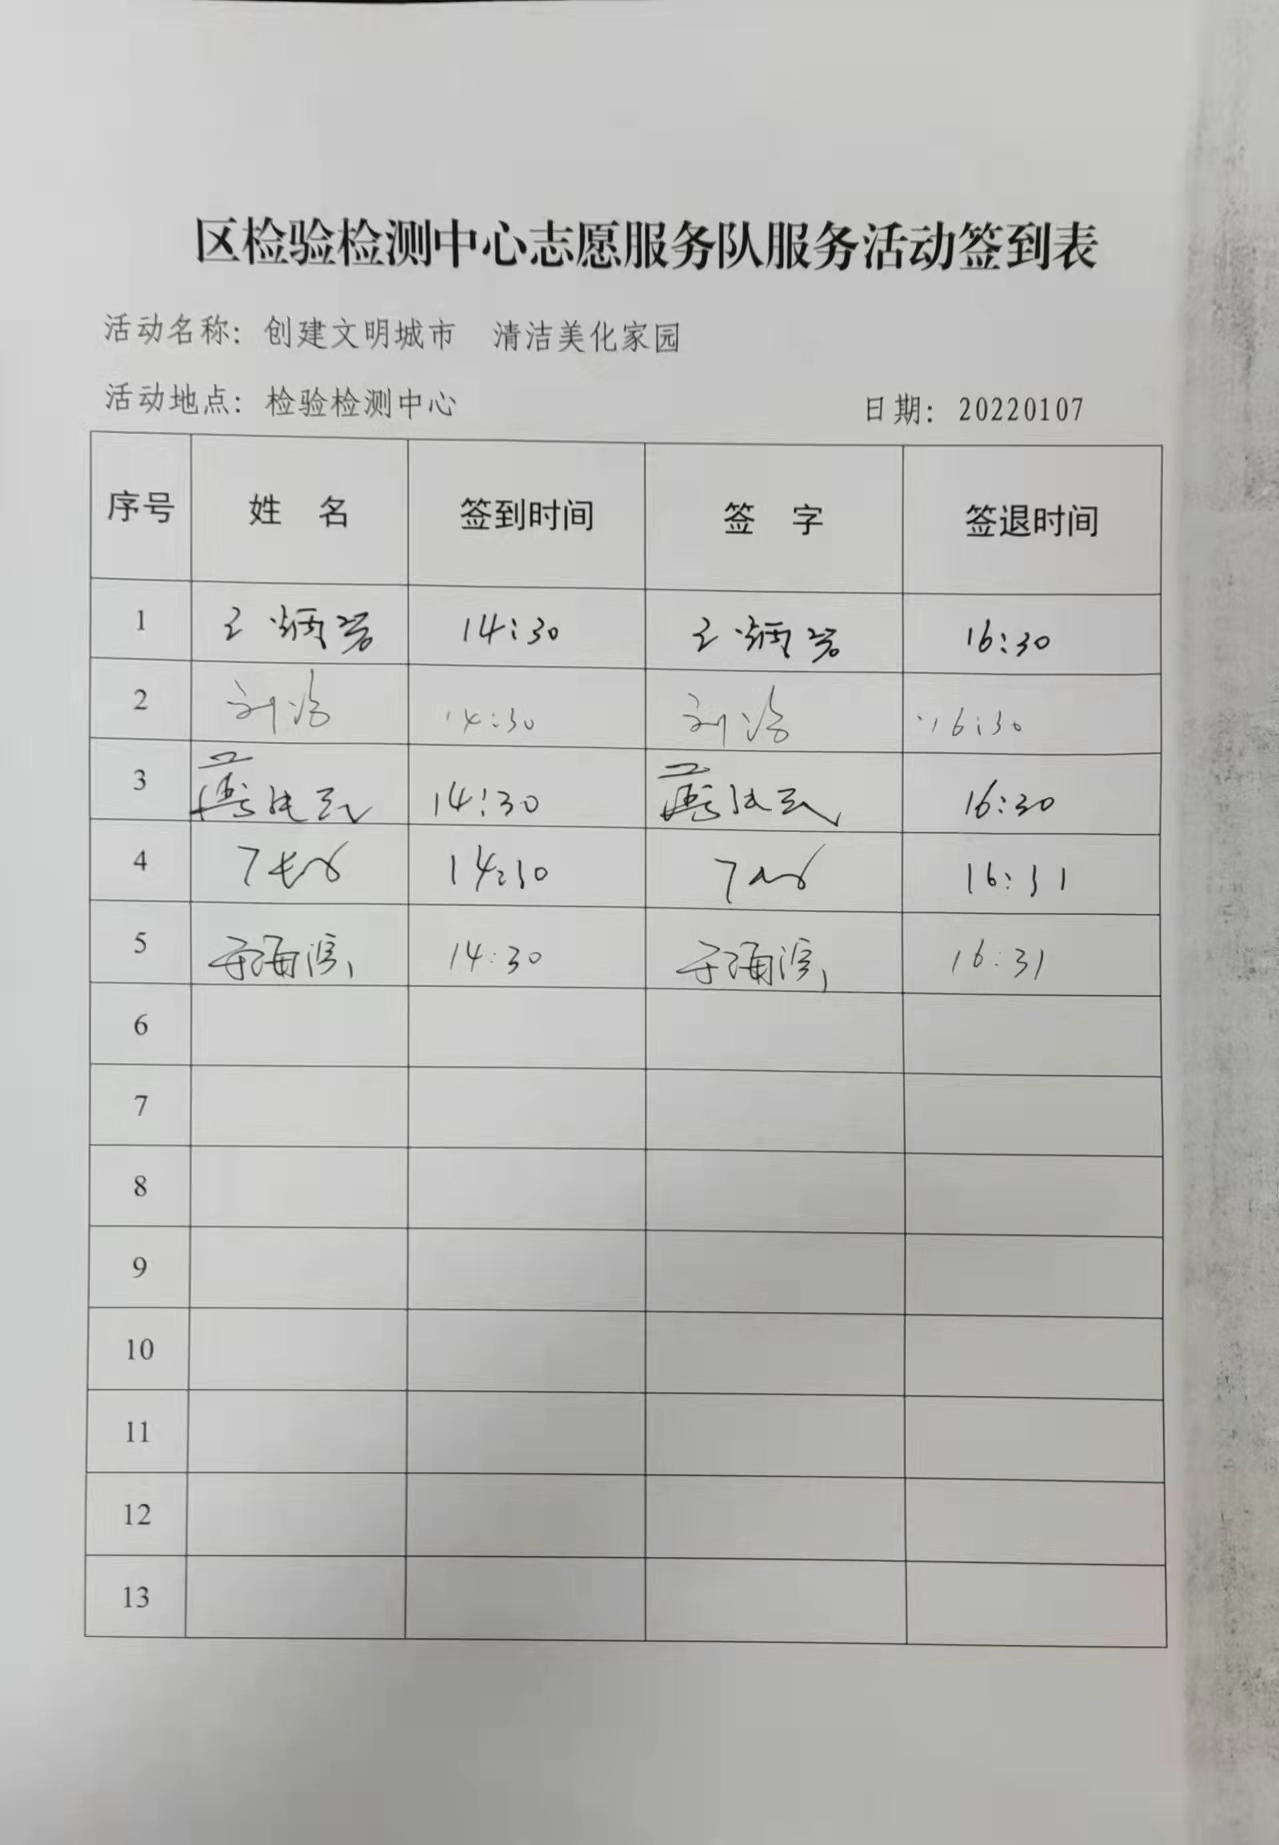 区检验检测中心志愿服务队服务活动签到表
活动名称：创建文明城市 清洁美化家园
活动地点：检验检测中心 日期：20220107
序号 姓名 签到时间 签字 签退时间
1 王炳岩 14:30 王炳岩 16:30
2 刘 14:30 刘 16:30
3 14:30 16:30
4 14:30 16:31
5 于海滨 14:30 于海滨 16:31
6
7
8
9
10
11
12
13